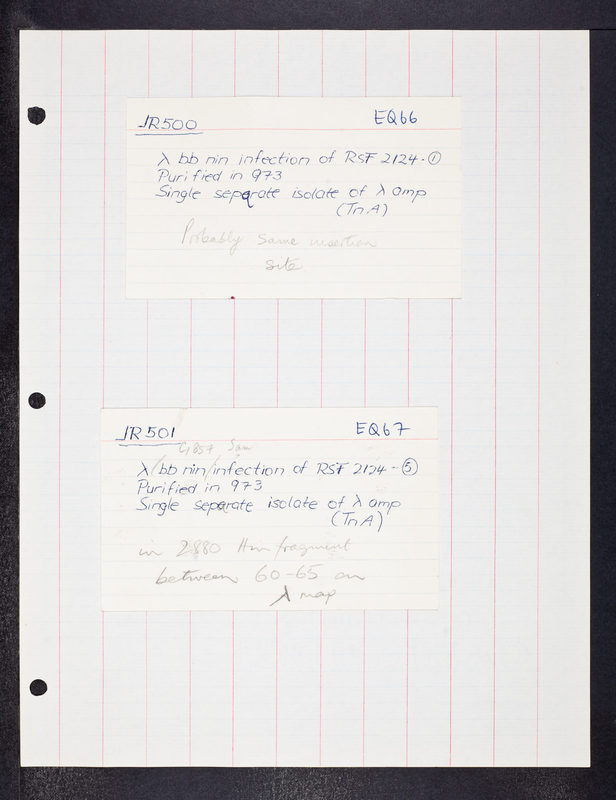 JR500 EQ66
λ bb nin infection of RSF 2124 - ①
Purified in 973
Single seperate isolate of λ amp
(Tn.A)
Probably same insertion
site
JR501 EQ67
CI857 Sam
λ/bb nin/infection of RSF 2124 - ⑤
Purified in 973
Single seperate isolate of λ amp
(TnA)
in 2880 Hin fragment
between 60-65 on
λ map